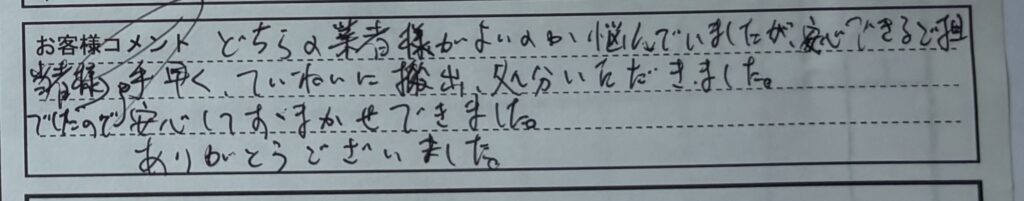 お客様コメント どちらの業者様がよいのか悩んでいましたが、安心できるご担
当者様 手早く、ていねいに搬出、処分いただきました。
でしたので 安心しておまかせできました。
ありがとうございました。